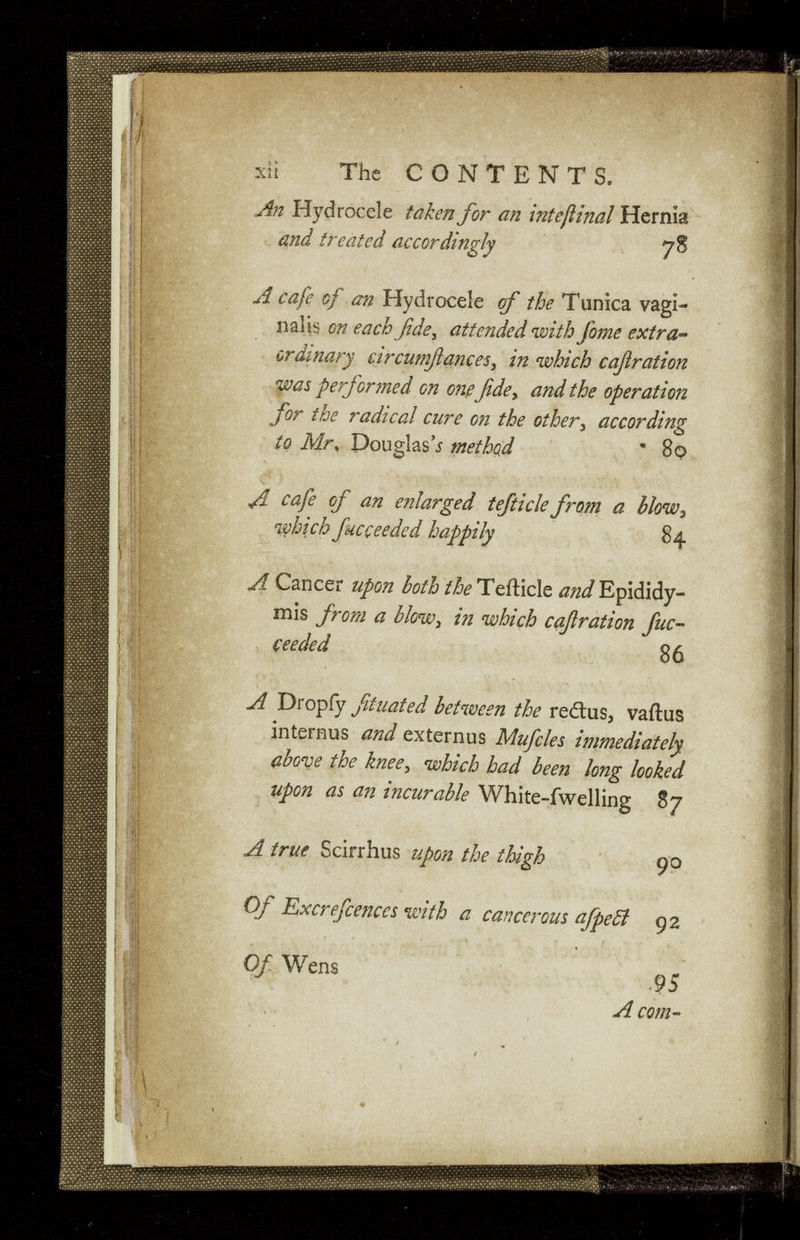 xii The CONTENTS.
An Hydrocele taken for an inteſtinal Hernia
and treated accordingly 78
A caſe of an Hydrocele of the Tunica vagi-
nalis on each ſide, attended with ſome extra-
ordinary circumſtances, in which caſtration
was performed on one ſide, and the operation
for the radical cure on the other, according
to Mr. Douglas's method 80
A caſe of an enlarged teſticle from a blow,
which ſucceeded happily 84
A Cancer upon both the Teſticle and Epididy-
mis from a blow, in which caſtration ſuc-
ceeded 86
A Dropſy ſituated between the rectus, vaſtus
internus and externus Muſcles immediately
above the knee, which had been long looked
upon as an incurable White-ſwelling 87
A true Scirrhus upon the thigh 90
Of Excreſcences with a cancerous aſpect 92
Of Wens 95
A com-